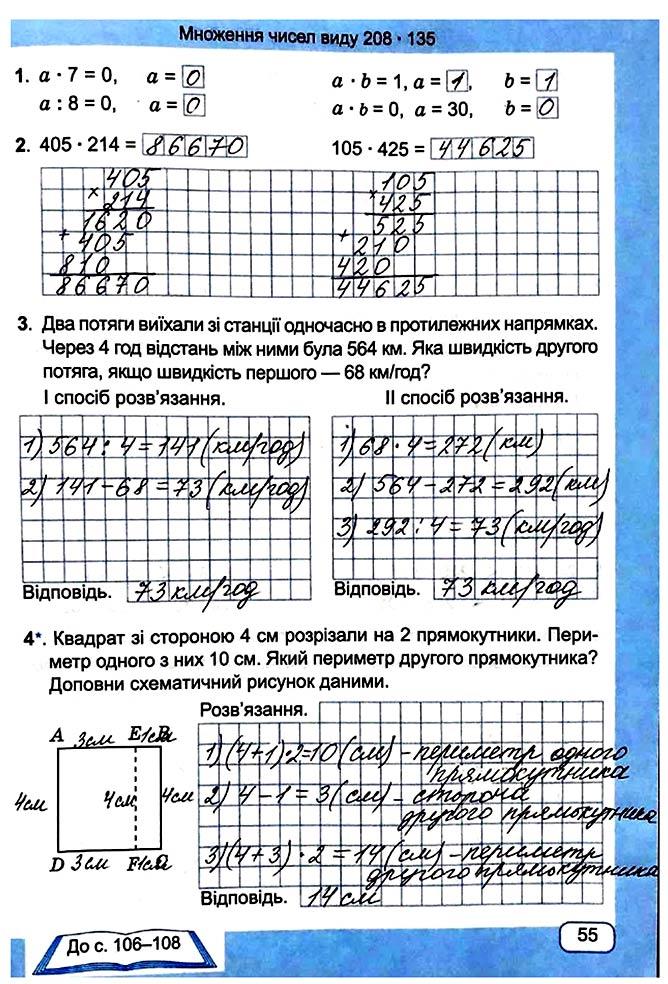 Множення чисел виду 208 · 135
1. a · 7 = 0, a = 0 a · b = 1, a = 1, b = 1
a : 8 = 0, a = 0 a · b = 0, a = 30, b = 0
2. 405 · 214 = 86670 105 · 425 = 44625
405 105
× 214 × 425
1620 525
+ 405 + 210
810 420
86670 44625
3. Два потяги виїхали зі станції одночасно в протилежних напрямках.
Через 4 год відстань між ними була 564 км. Яка швидкість другого
потяга, якщо швидкість першого — 68 км/год?
I спосіб розв'язання. II спосіб розв'язання.
1) 564 : 4 = 141 (км/год) 1) 68 · 4 = 272 (км)
2) 141 – 68 = 73 (км/год) 2) 564 – 272 = 292 (км)
3) 292 : 4 = 73 (км/год)
Відповідь. 73 км/год Відповідь. 73 км/год
4*. Квадрат зі стороною 4 см розрізали на 2 прямокутники. Пери-
метр одного з них 10 см. Який периметр другого прямокутника?
Доповни схематичний рисунок даними.
Розв'язання.
A 3см E 1см B
1) (4+1)·2=10 (см) – периметр одного
прямокутника
4см 4см 4см
2) 4 – 1 = 3 (см) – сторона
другого прямокутника
D 3см F 1см C
3) (4+3) · 2 = 14 (см) – периметр
другого прямокутника
Відповідь. 14 см
До с. 106–108
55